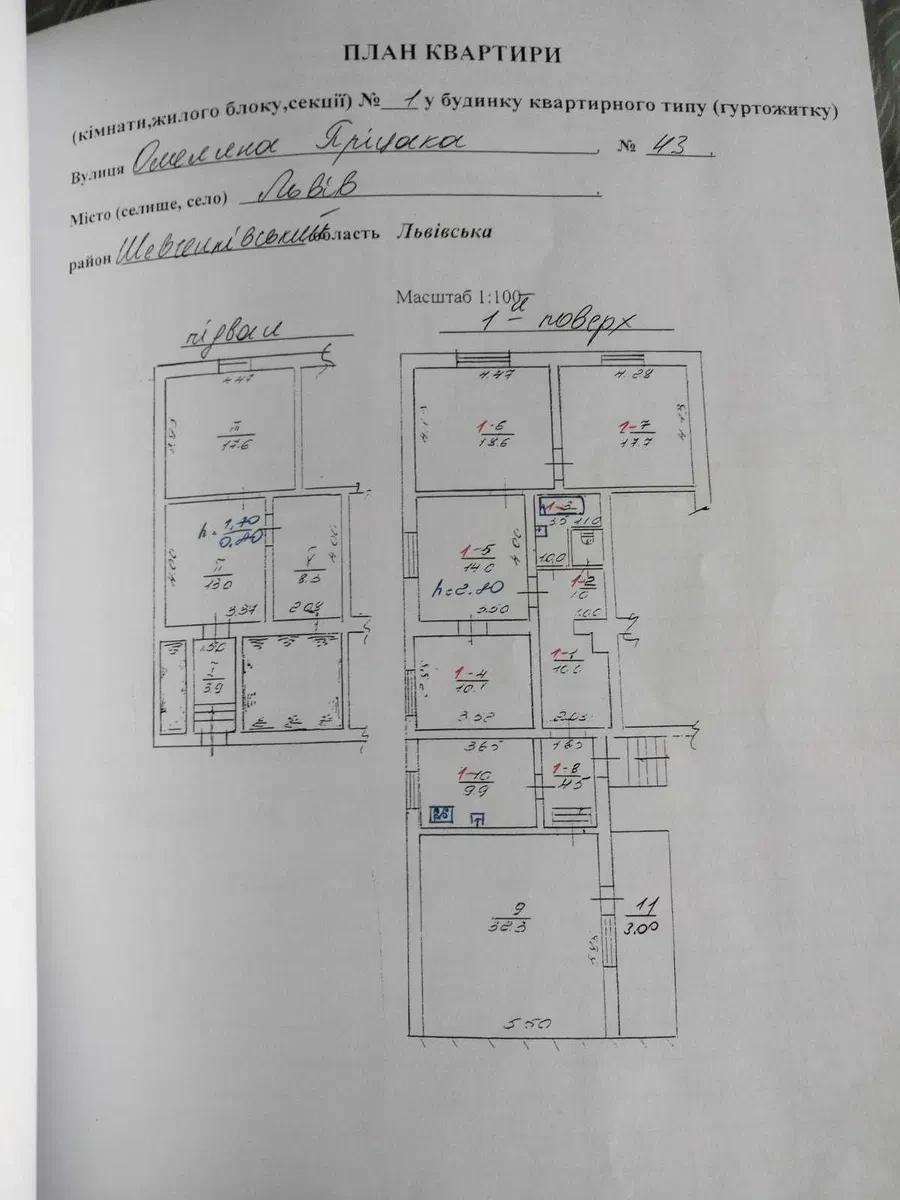 ПЛАН КВАРТИРИ
(кімнати,жилого блоку,секції) № 1 у будинку квартирного типу (гуртожитку)
Вулиця Омеляна Пріцака, № 43.
Місто (селище, село) Львів.
район Шевченківський область Львівська
Масштаб 1:100
підвал
1-й поверх
4.47
III
17.6
h = 1,70
0,80
4.00
II
13.0
3.37
V
8.3
4.00
2.08
1.50
I
3.9
4.47
1-6
18.6
4.28
1-7
17.7
4.13
1-5
14.0
4.00
h=2.80
3.50
1-3
3.5
1.10
1-2
1.0
1.00
1-1
10.0
2.03
1-4
10.1
3.52
3.65
1-10
9.9
1.65
1-8
4.5
9
32.3
5.50
11
3.00